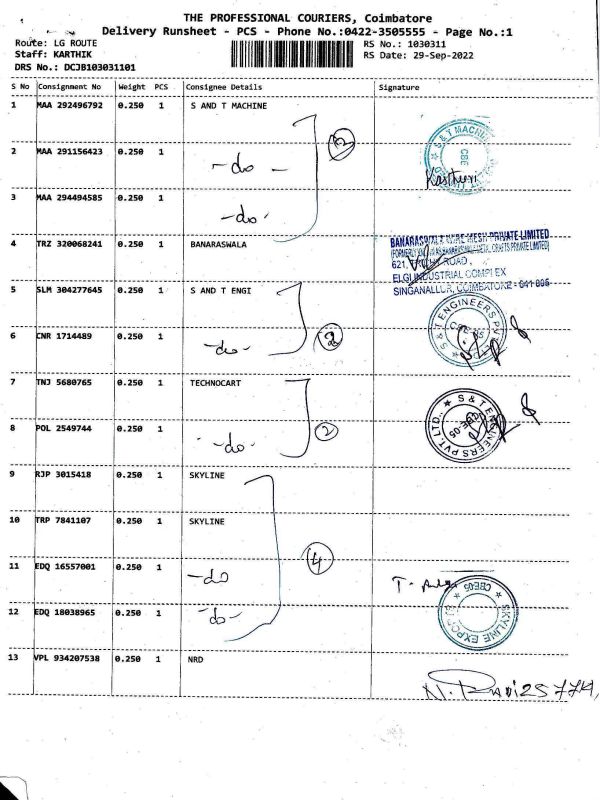 THE PROFESSIONAL COURIERS, Coimbatore
Delivery Runsheet - PCS - Phone No.:0422-3505555 - Page No.:1
Route: LG ROUTE
RS No.: 1030311
Staff: KARTHIK
RS Date: 29-Sep-2022
DRS No.: DCJB103031101
S No Consignment No Weight PCS Consignee Details Signature
1 MAA 292496792 0.250 1 S AND T MACHINE
3
2 MAA 291156423 0.250 1 -do-
S & T MACHIN
CBE
Kasthuri
3 MAA 294494585 0.250 1 -do-
4 TRZ 320068241 0.250 1 BANARASWALA
BANARASWALA WIRE MESH PRIVATE LIMITED
621,
ROAD,
ELGI INDUSTRIAL COMPLEX
SINGANALLUR, COIMBATORE - 641 005
5 SLM 304277645 0.250 1 S AND T ENGI
2
S & T ENGINEERS PV
CBE-05
6 CNR 1714489 0.250 1 -do-
7 TNJ 5680765 0.250 1 TECHNOCART
2
S & T ENGINEERS PVT. LTD.,
CBE-05
8 POL 2549744 0.250 1 -do-
9 RJP 3015418 0.250 1 SKYLINE
10 TRP 7841107 0.250 1 SKYLINE
4
11 EDQ 16557001 0.250 1 -do
T.
CBE05
SKYLINE EXPOR
12 EDQ 18038965 0.250 1 -do-
13 VPL 934207538 0.250 1 NRD